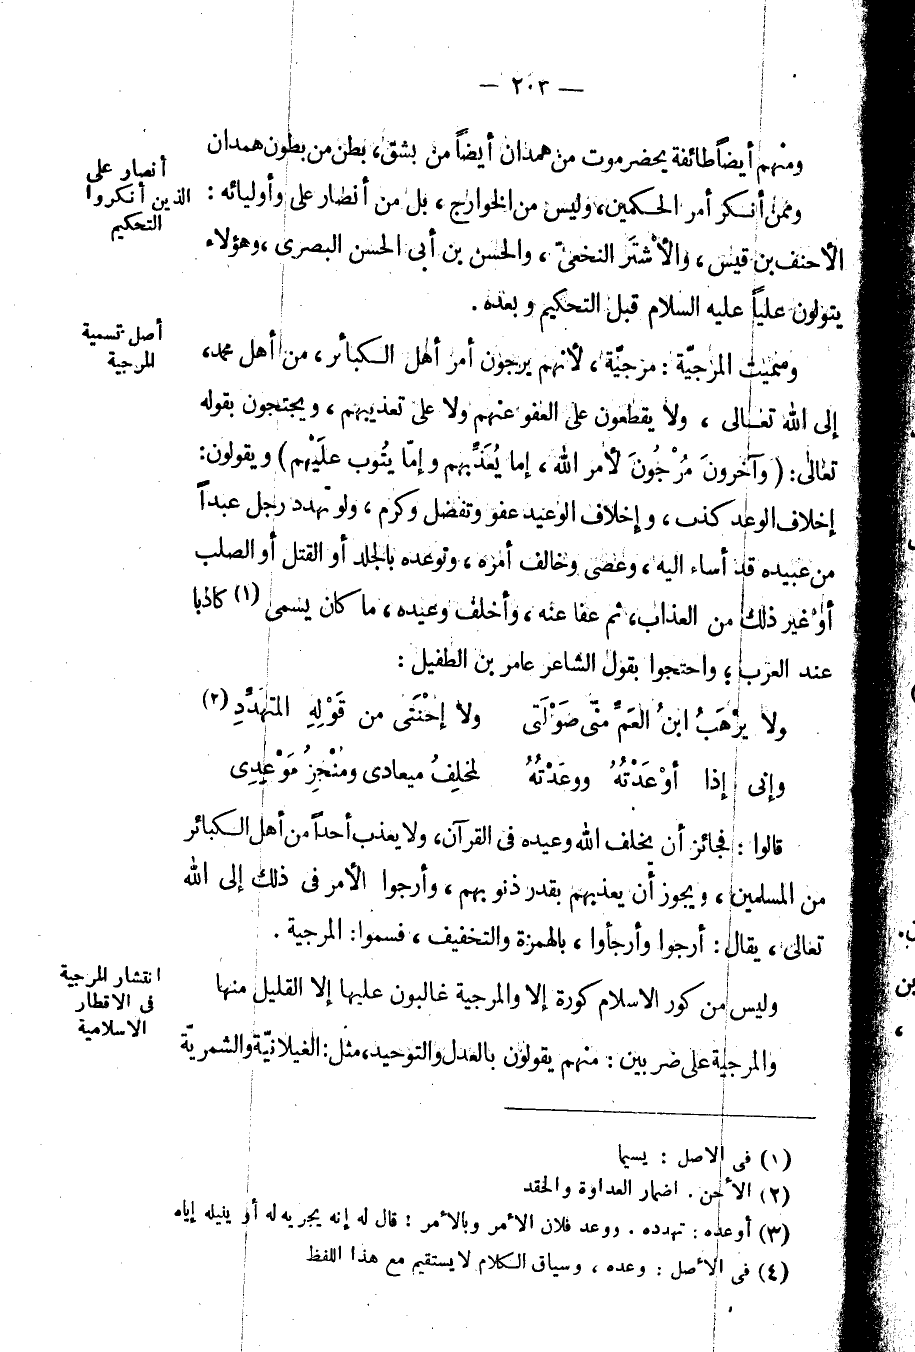 — ٢٠٣ —
ومنهم أيضاً طائفة بحضرموت من همدان أيضاً من بشق، بطن من بطون همدان
وممن أنكر أمر الحكمين، وليس من الخوارج، بل من أنصار على وأوليائه :
الأحنف بن قيس، والأشتَر النخعىّ، والحسن بن أبى الحسن البصرى، وهؤلاء
يتولون علياً عليه السلام قبل التحكيم وبعده .
أنصار على
الذين أنكروا
التحكيم
وسميت المرجيّة : مرجيّة، لأنهم يرجون أمر أهل الكبائر، من أهل محمد،
إلى الله تعالى، ولا يقطعون على العفو عنهم ولا على تعذيبهم، ويحتجون بقوله
تعالى: ( وآخرونَ مُرْجُونَ لأمر الله، إما يُعَذِّبهم وإمّا يتُوب علَيْهم ) ويقولون:
إخلاف الوعد كذب، وإخلاف الوعيد عفو وتفضل وكرم، ولو تهدد رجل عبداً
من عبيده قد أساء اليه، وعصى وخالف أمره، وتوعده بالجلد أو القتل أو الصلب
أو غير ذلك من العذاب، ثم عفا عنه، وأخلف وعيده، ما كان يسمى (١) كاذبا
عند العرب؛ واحتجوا بقول الشاعر عامر بن الطفيل :
أصل تسمية
المرجية
ولا يرْهَبُ ابنُ العَمِّ منّى صَوْلَتى ولا إحْنَتَى من قَوْلِهِ المتهَدِّدِ (٢)
وإنى إذا أوْعَدْتُهُ ووعَدْتُهُ لمخلِفُ ميعادى ومنْجِزُ مَوْعِدِى
قالوا : فجائز أن يخلف الله وعيده فى القرآن، ولا يعذب أحداً من أهل الكبائر
من المسلمين، ويجوز أن يعذبهم بقدر ذنوبهم، وأرجوا الأمر فى ذلك إلى الله
تعالى، يقال : أرجوا وأرجأوا، بالهمزة والتخفيف، فسموا: المرجية .
وليس من كور الاسلام كورة إلا والمرجية غالبون عليها إلا القليل منها
والمرجية على ضربين : منهم يقولون بالعدل والتوحيد، مثل: الغيلانيّة والشمريّة
انتشار المرجية
فى الاقطار
الاسلامية
(١) فى الاصل : يسيما
(٢) الأحن . اضمار العداوة والحقد
(٣) أوعده : تهدده . ووعد فلان الأمر وبالأمر : قال له إنه يجريه له أو ينيله إياه
(٤) فى الأصل : وعده، وسياق الكلام لا يستقيم مع هذا اللفظ